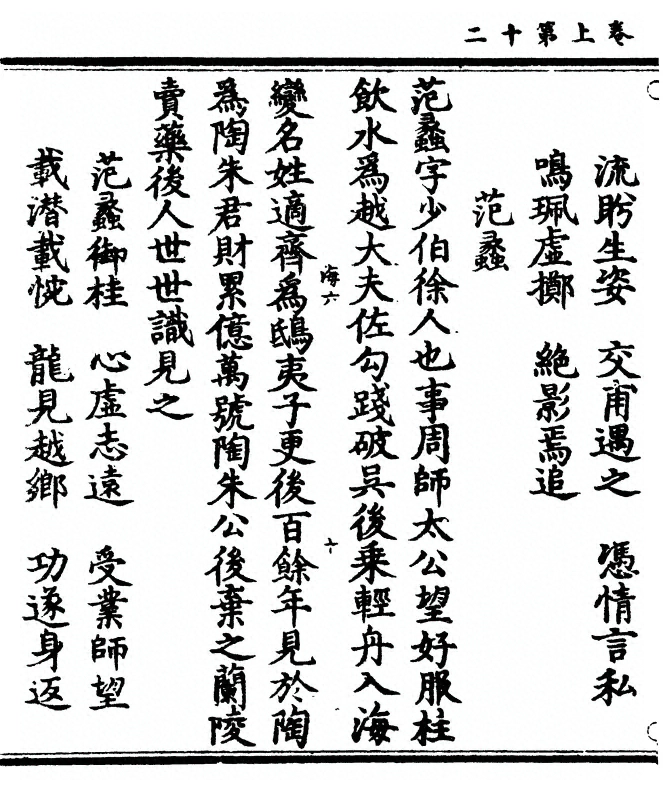 卷上第十二
流眄生姿 交甫遇之 憑情言私
鳴珮虛擲 絶影焉追
范蠡
范蠡字少伯徐人也事周師太公望好服柱
飲水為越大夫佐勾踐破吳後乗輕舟入海
海六
十
變名姓適齊為鴟夷子更後百餘年見於陶
為陶朱君財累億萬號陶朱公後棄之蘭陵
賣藥後人世世識見之
范蠡御桂 心虛志遠 受業師望
載潛載忱 龍見越鄉 功遂身返